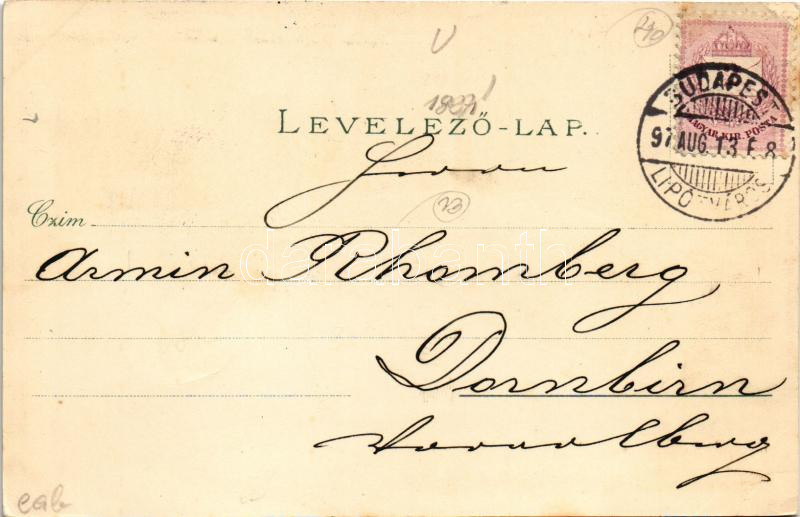 U
1897!
LEVELEZŐ-LAP.
BUDAPEST
97 AUG. 13 F. 8
LIPÓTVÁROS
MAGYAR KIR. POSTA
Herrn
Czim
Armin Rhomberg
darabanth
Dornbirn
Vorarlberg